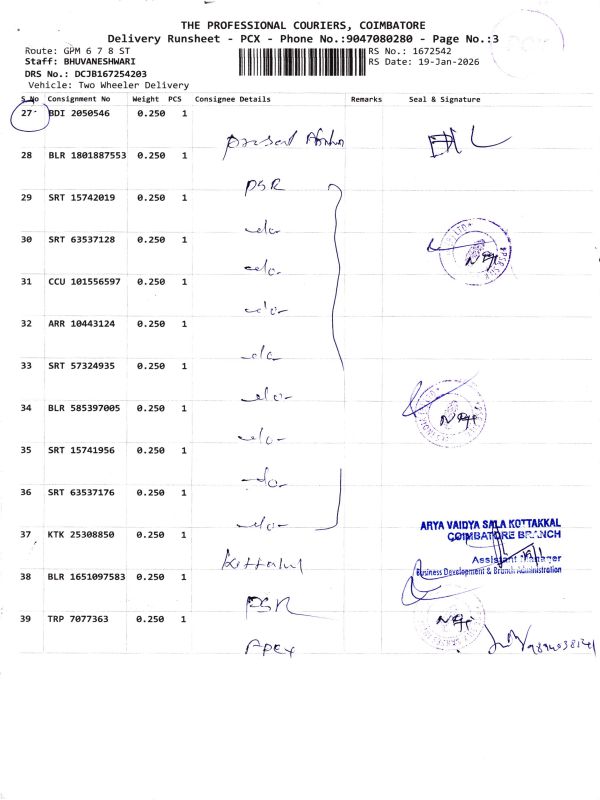 THE PROFESSIONAL COURIERS, COIMBATORE
Delivery Runsheet - PCX - Phone No.:9047080280 - Page No.:3
Route: GPM 6 7 8 ST
RS No.: 1672542
Staff: BHUVANESHWARI
RS Date: 19-Jan-2026
DRS No.: DCJB167254203
Vehicle: Two Wheeler Delivery
S.No Consignment No Weight PCS Consignee Details Remarks Seal & Signature
27 BDI 2050546 0.250 1
28 BLR 1801887553 0.250 1
PSR
29 SRT 15742019 0.250 1
-do-
30 SRT 63537128 0.250 1
-do-
31 CCU 101556597 0.250 1
-do-
32 ARR 10443124 0.250 1
-do-
33 SRT 57324935 0.250 1
-do-
34 BLR 585397005 0.250 1
-do-
35 SRT 15741956 0.250 1
-do-
36 SRT 63537176 0.250 1
-do-
ARYA VAIDYA SALA KOTTAKKAL
COIMBATORE BRANCH
37 KTK 25308850 0.250 1
Assistant Manager
Business Development & Branch Administration
38 BLR 1651097583 0.250 1
PSR
39 TRP 7077363 0.250 1
Apex